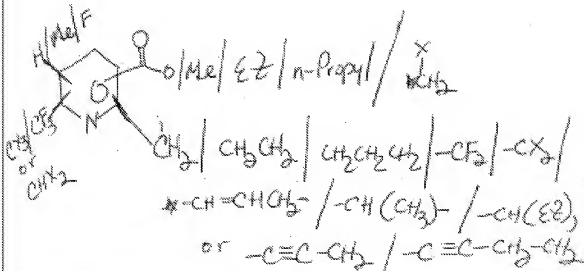 H/Me/F
O
O/Me/EZ/n-Propyl/
X
CH2
O
CF3
CH3/
or
CHX2
N
CH2/CH2CH2/CH2CH2CH2/-CF2/-CX2/
*-CH=CHCH2-/-CH(CH3)-/-CH(EZ),
or -C≡C-CH2/-C≡C-CH2-CH2